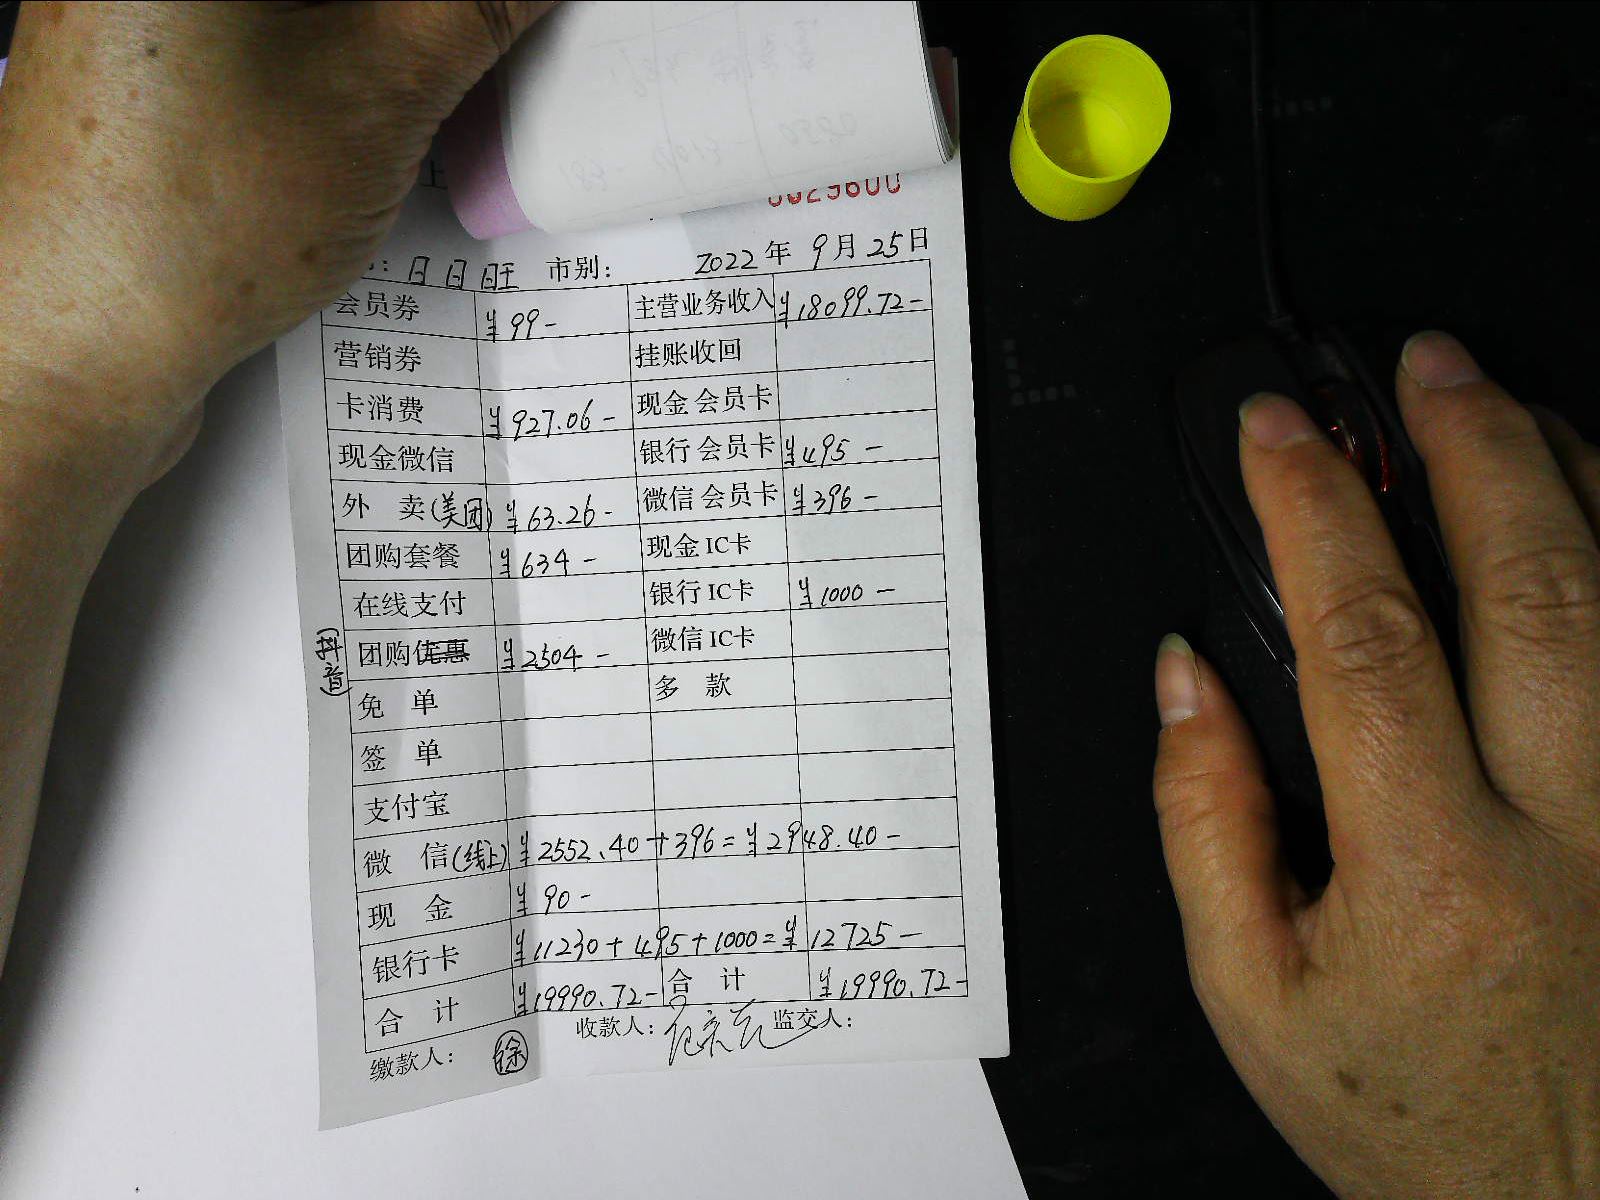 0029600
日日旺 市别： 2022年9月25日
会员券 ¥99- 主营业务收入 ¥18099.72-
营销券 挂账收回
卡消费 ¥927.06- 现金会员卡
现金微信 银行会员卡 ¥495-
外 卖(美团) ¥63.26- 微信会员卡 ¥396-
团购套餐 ¥634- 现金IC卡
在线支付 银行IC卡 ¥1000-
(抖音) 团购优惠 ¥2504- 微信IC卡
免 单 多 款
签 单
支付宝
微 信(线上) ¥2552.40+396=¥2948.40-
现 金 ¥90-
银行卡 ¥11230+495+1000=¥12725-
合 计 ¥19990.72- 合 计 ¥19990.72-
缴款人： 徐 收款人： 监交人：